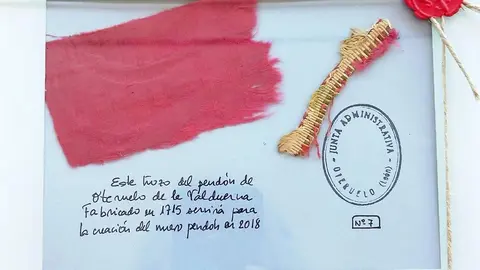 Este trozo del pendón de
Oteruelo de la Valduerna
Fabricado en 1715 servirá para
la creación del nuevo pendón en 2018
JUNTA ADMINISTRATIVA
OTERUELO (León)
Nº 7